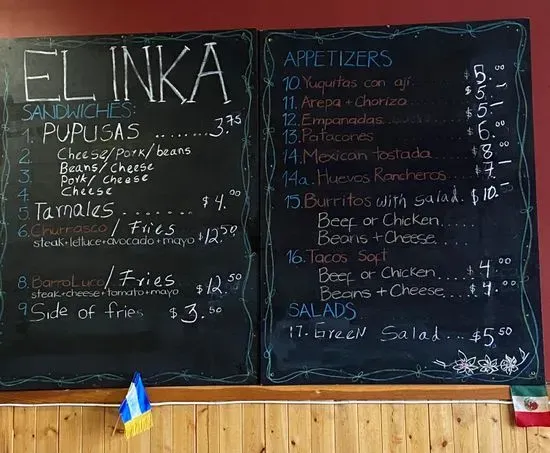 EL INKA
SANDWICHES:
1. PUPUSAS ........ 3.75
2. Cheese/Pork/beans
3. Beans/Cheese
4. Pork/Cheese
Cheese
5. Tamales ....... $4.00
6. Churrasco / Fries
steak+lettuce+avocado+mayo $12.50
8. BarroLuco / Fries
steak+cheese+tomato+mayo $12.50
9 Side of fries $3.50
APPETIZERS
10. Yuquitas con ají ..... $5.00
11. Arepa + Chorizo ..... $5.-
12. Empanadas ..... $5.-
13. Patacones ..... $6.00
14. Mexican tostada .... $8.00
14a. Huevos Rancheros $7.-
15. Burritos with Salad. $10.-
Beef or Chicken....
Beans + Cheese....
16. Tacos Soft
Beef or Chicken.... $4.00
Beans + Cheese.... $4.00
SALADS
17. Green Salad... $5.50